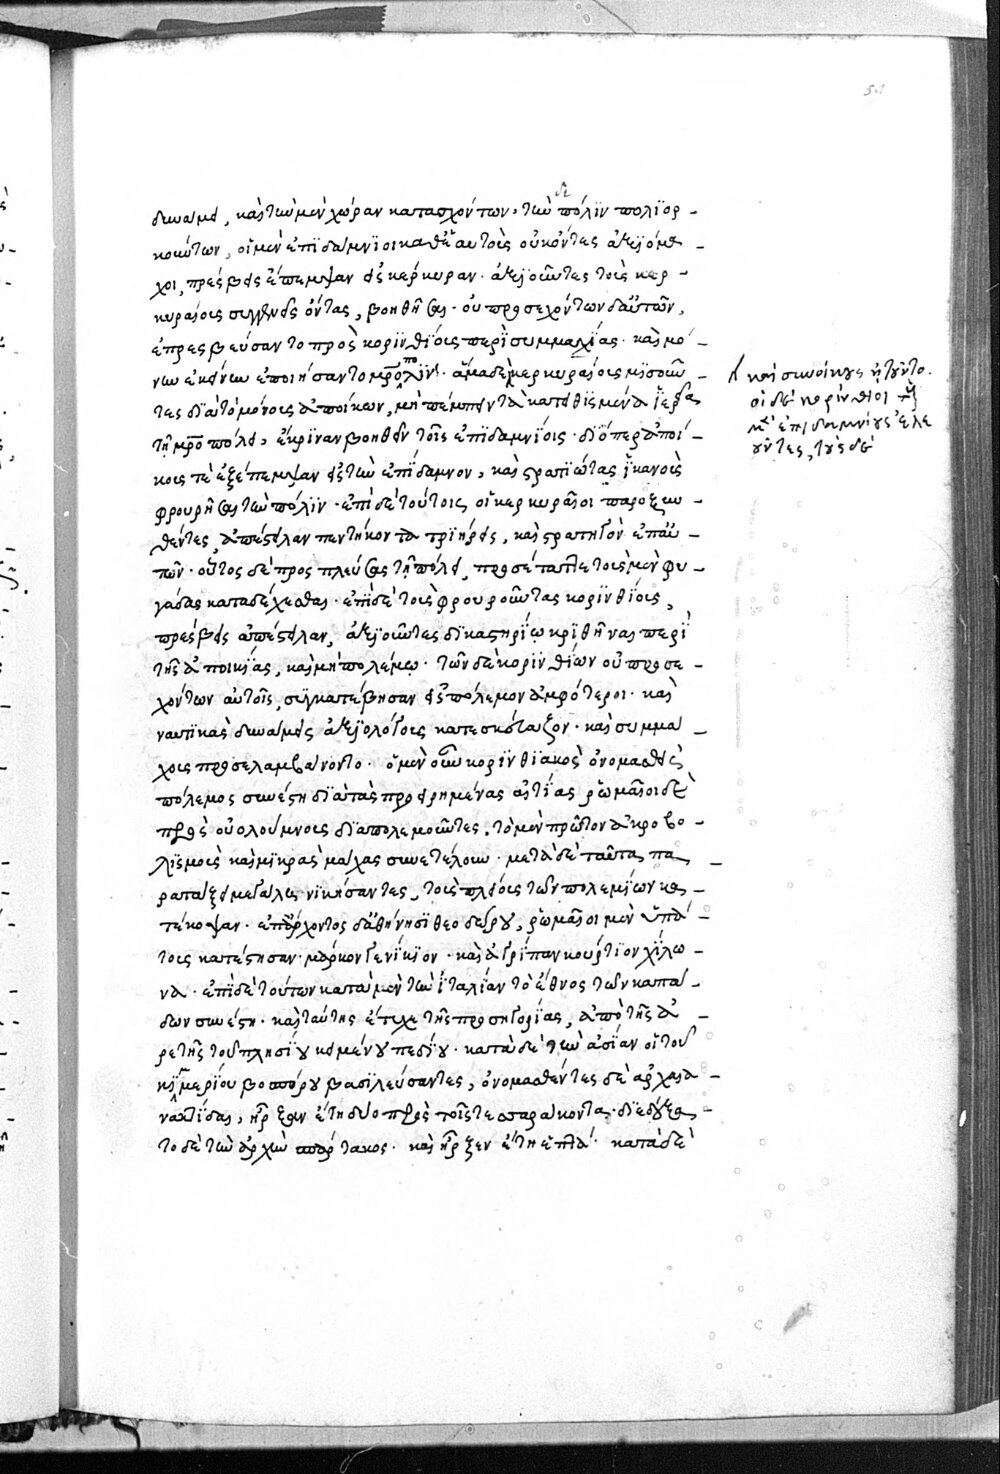 51
δυνάμει, καὶ τὴν μὲν χώραν κατασχόντων, τὴν δὲ πόλιν πολιορ-
κούντων, οἱ μὲν ἐπιδάμνιοι καθ' αὑτοὺς οὐκ ὄντες ἀξιόμα-
χοι, πρέσβεις ἔπεμψαν εἰς κέρκυραν· ἀξιοῦντες τοὺς κερ-
κυραίους συγγενεῖς ὄντας, βοηθῆσαι· οὐ προσεχόντων δ' αὐτῶν,
ἐπρεσβεύσαντο πρὸς κορινθίους περὶ συμμαχίας· καὶ μό-
νην ἐκείνην ἐποιήσαντο μρόπολιν· ἅμα δὲ κερκυραίοις μισοῦν-
τες διὰ τὸ μόνους ἀποίκων, μὴ πέμπειν τὰ κατειθισμένα ἱερεῖα
τῇ μροπόλει, ἔκριναν βοηθεῖν τοῖς ἐπιδαμνίοις· διόπερ ἀποί-
κους τε ἐξέπεμψαν εἰς τὴν ἐπίδαμνον, καὶ στρατιώτας ἱκανοὺς
φρουρῆσαι τὴν πόλιν· ἐπὶ δὲ τούτοις οἱ κερκυραῖοι παροξυν-
θέντες, ἀπέστειλαν πεντήκοντα τριήρεις, καὶ στρατηγὸν ἐπ' αὐ-
τῶν· οὗτος δὲ προσπλεύσας τῇ πόλει, προσέταττε τοὺς μὲν φυ-
γάδας καταδέχεσθαι· ἐπὶ δὲ τοὺς φρουροῦντας κορινθίους,
πρέσβεις ἀπέστειλαν, ἀξιοῦντες δικαστηρίῳ κριθῆναι περὶ
τῆς ἀποικίας, καὶ μὴ πολέμῳ· τῶν δὲ κορινθίων οὐ προσε-
χόντων αὐτοῖς, συγκατέβησαν εἰς πόλεμον ἀμφότεροι· καὶ
ναυτικὰς δυνάμεις ἀξιολόγους κατεσκεύαζον· καὶ συμμά-
χους προσελαμβάνοντο· ὁ μὲν οὖν κορινθιακὸς ὀνομασθεὶς
πόλεμος συνέστη διὰ τὰς προειρημένας αἰτίας ῥωμαῖοι δὲ
πρὸς οὐολούμνους διαπολεμοῦντες, τὸ μὲν πρῶτον ἀκροβο-
λισμοὺς καὶ μικρὰς μάχας συνετέλουν· μετὰ δὲ ταῦτα πα-
ρατάξει μεγάλῃ νικήσαντες, τοὺς πλείους τῶν πολεμίων κα-
τέκοψαν· ἐπ' ἄρχοντος δ' ἀθήνησι θεοδώρου, ῥωμαῖοι μὲν ὑπά-
τους κατέστησαν· μάρκον γενίκιον· καὶ ἀγρίπαν κούρτιον χίλω-
να· ἐπὶ δὲ τούτων κατὰ μὲν τὴν ἰταλίαν τὸ ἔθνος τῶν καπα-
δων συνέστη· καὶ ταύτης ἔτυχε τῆς προσηγορίας, ἀπὸ τῆς ἀ-
ρετῆς τοῦ πλησίου κειμένου πεδίου· κατὰ δὲ τὴν ἀσίαν οἱ τοῦ
κιμμερίου βοσπόρου βασιλεύσαντες, ὀνομασθέντες δὲ ἀρχαια-
νακτίδαι, ἦρξαν ἔτη δύο πρὸς τοῖς τεσσαράκοντα· διεδέξα-
το δὲ τὴν ἀρχὴν σπάρτακος· καὶ ἦρξεν ἔτη ἑπτά· κατὰ δὲ
καὶ συνοίκους ᾐτοῦντο.
οἱ δὲ κορίνθιοι τοὺς
μὲν ἐπιδαμνίους ἐλε
οῦντες, τοὺς δὲ